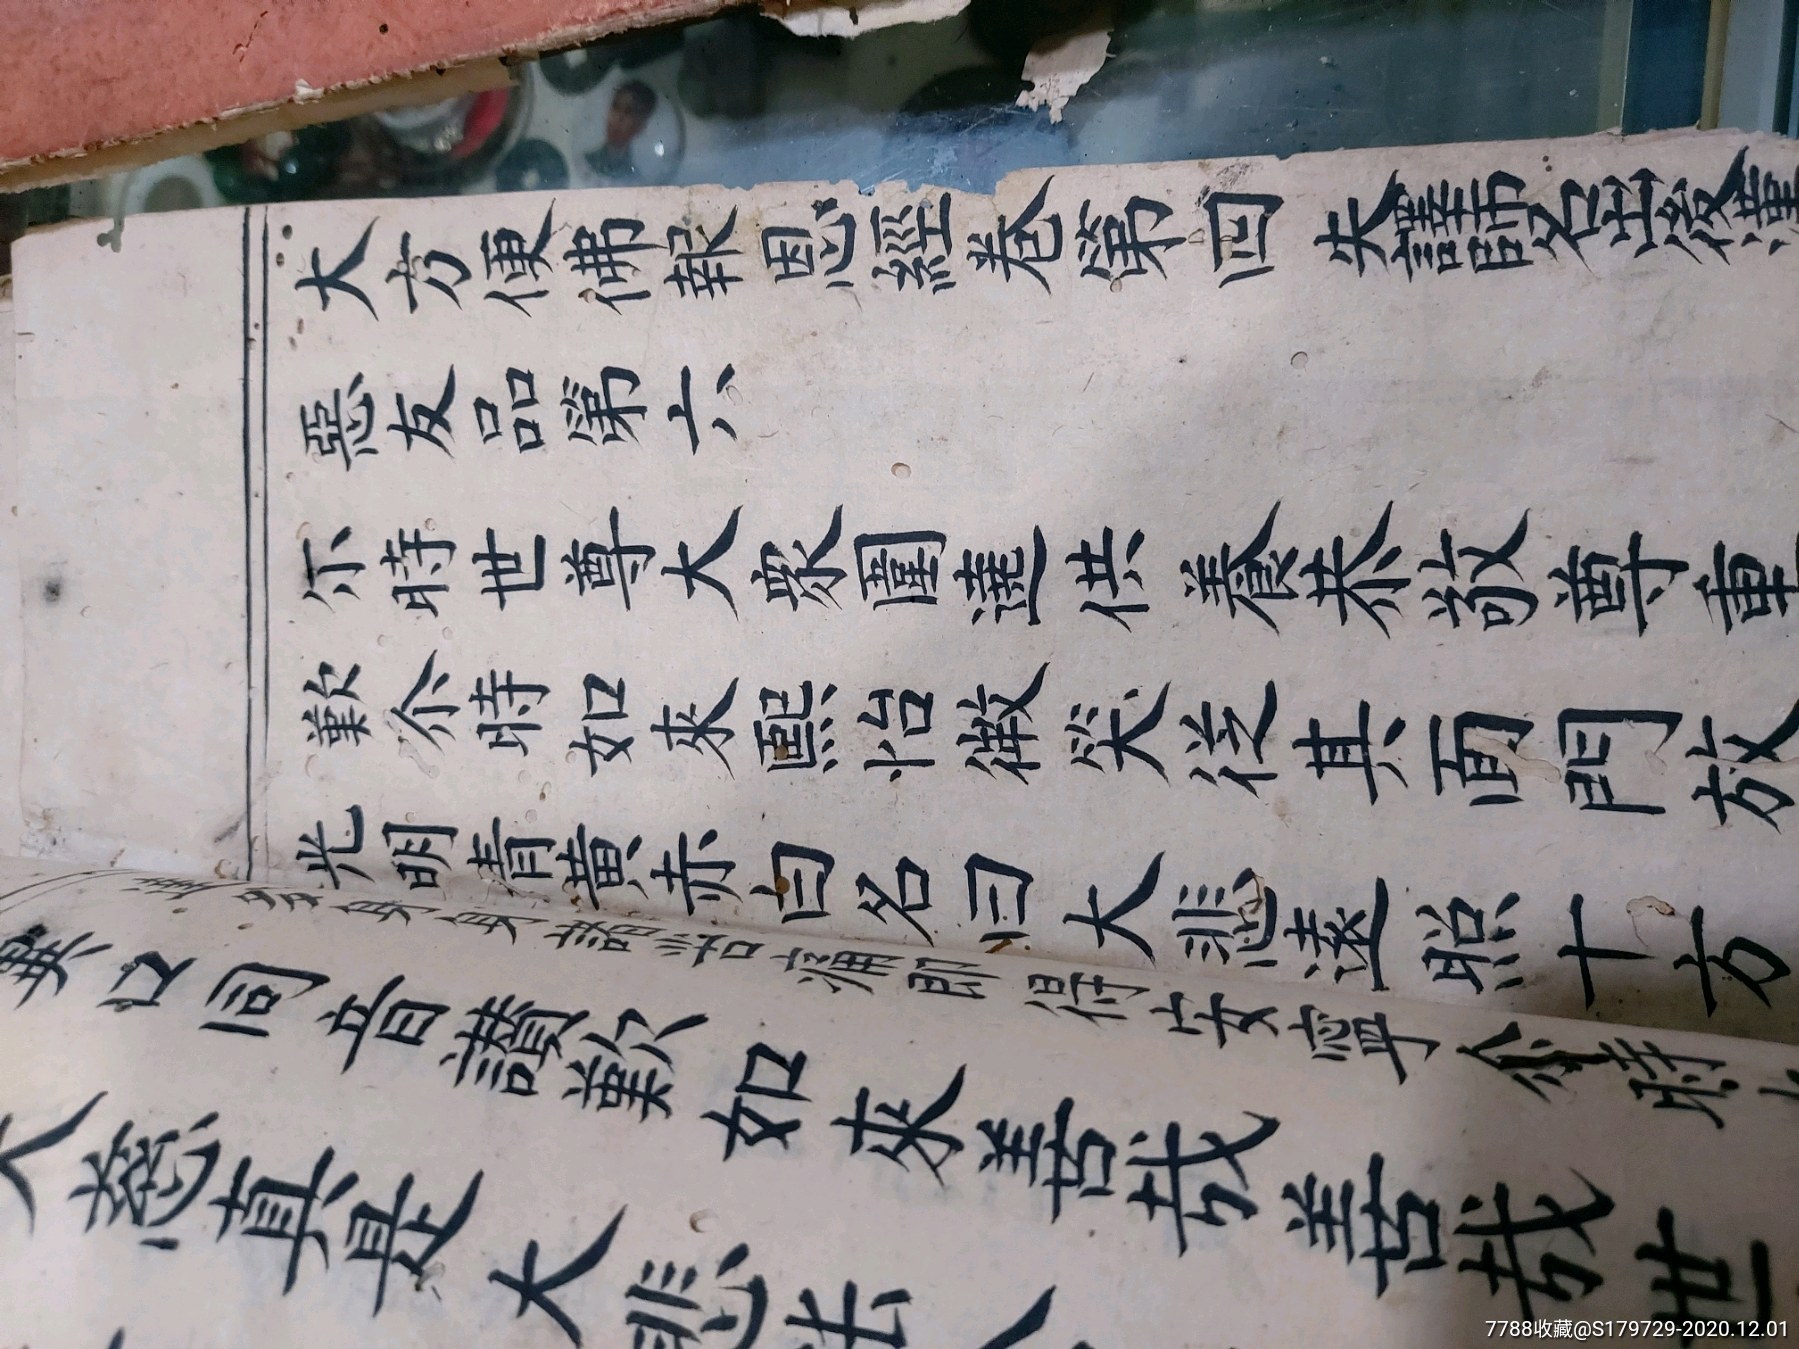 大方便佛報恩經卷第四 失譯師名出後漢
惡友品第六
尒時世尊大衆圍遶供養恭敬尊重
歎尒時如來熙怡微笑從其面門放
光明青黃赤白名曰大悲遠照十方
達多身身諸苦痛即得安寧尒時
異口同音讚歎如來善哉善哉世
大慈真是大悲
7788收藏@S179729-2020.12.01